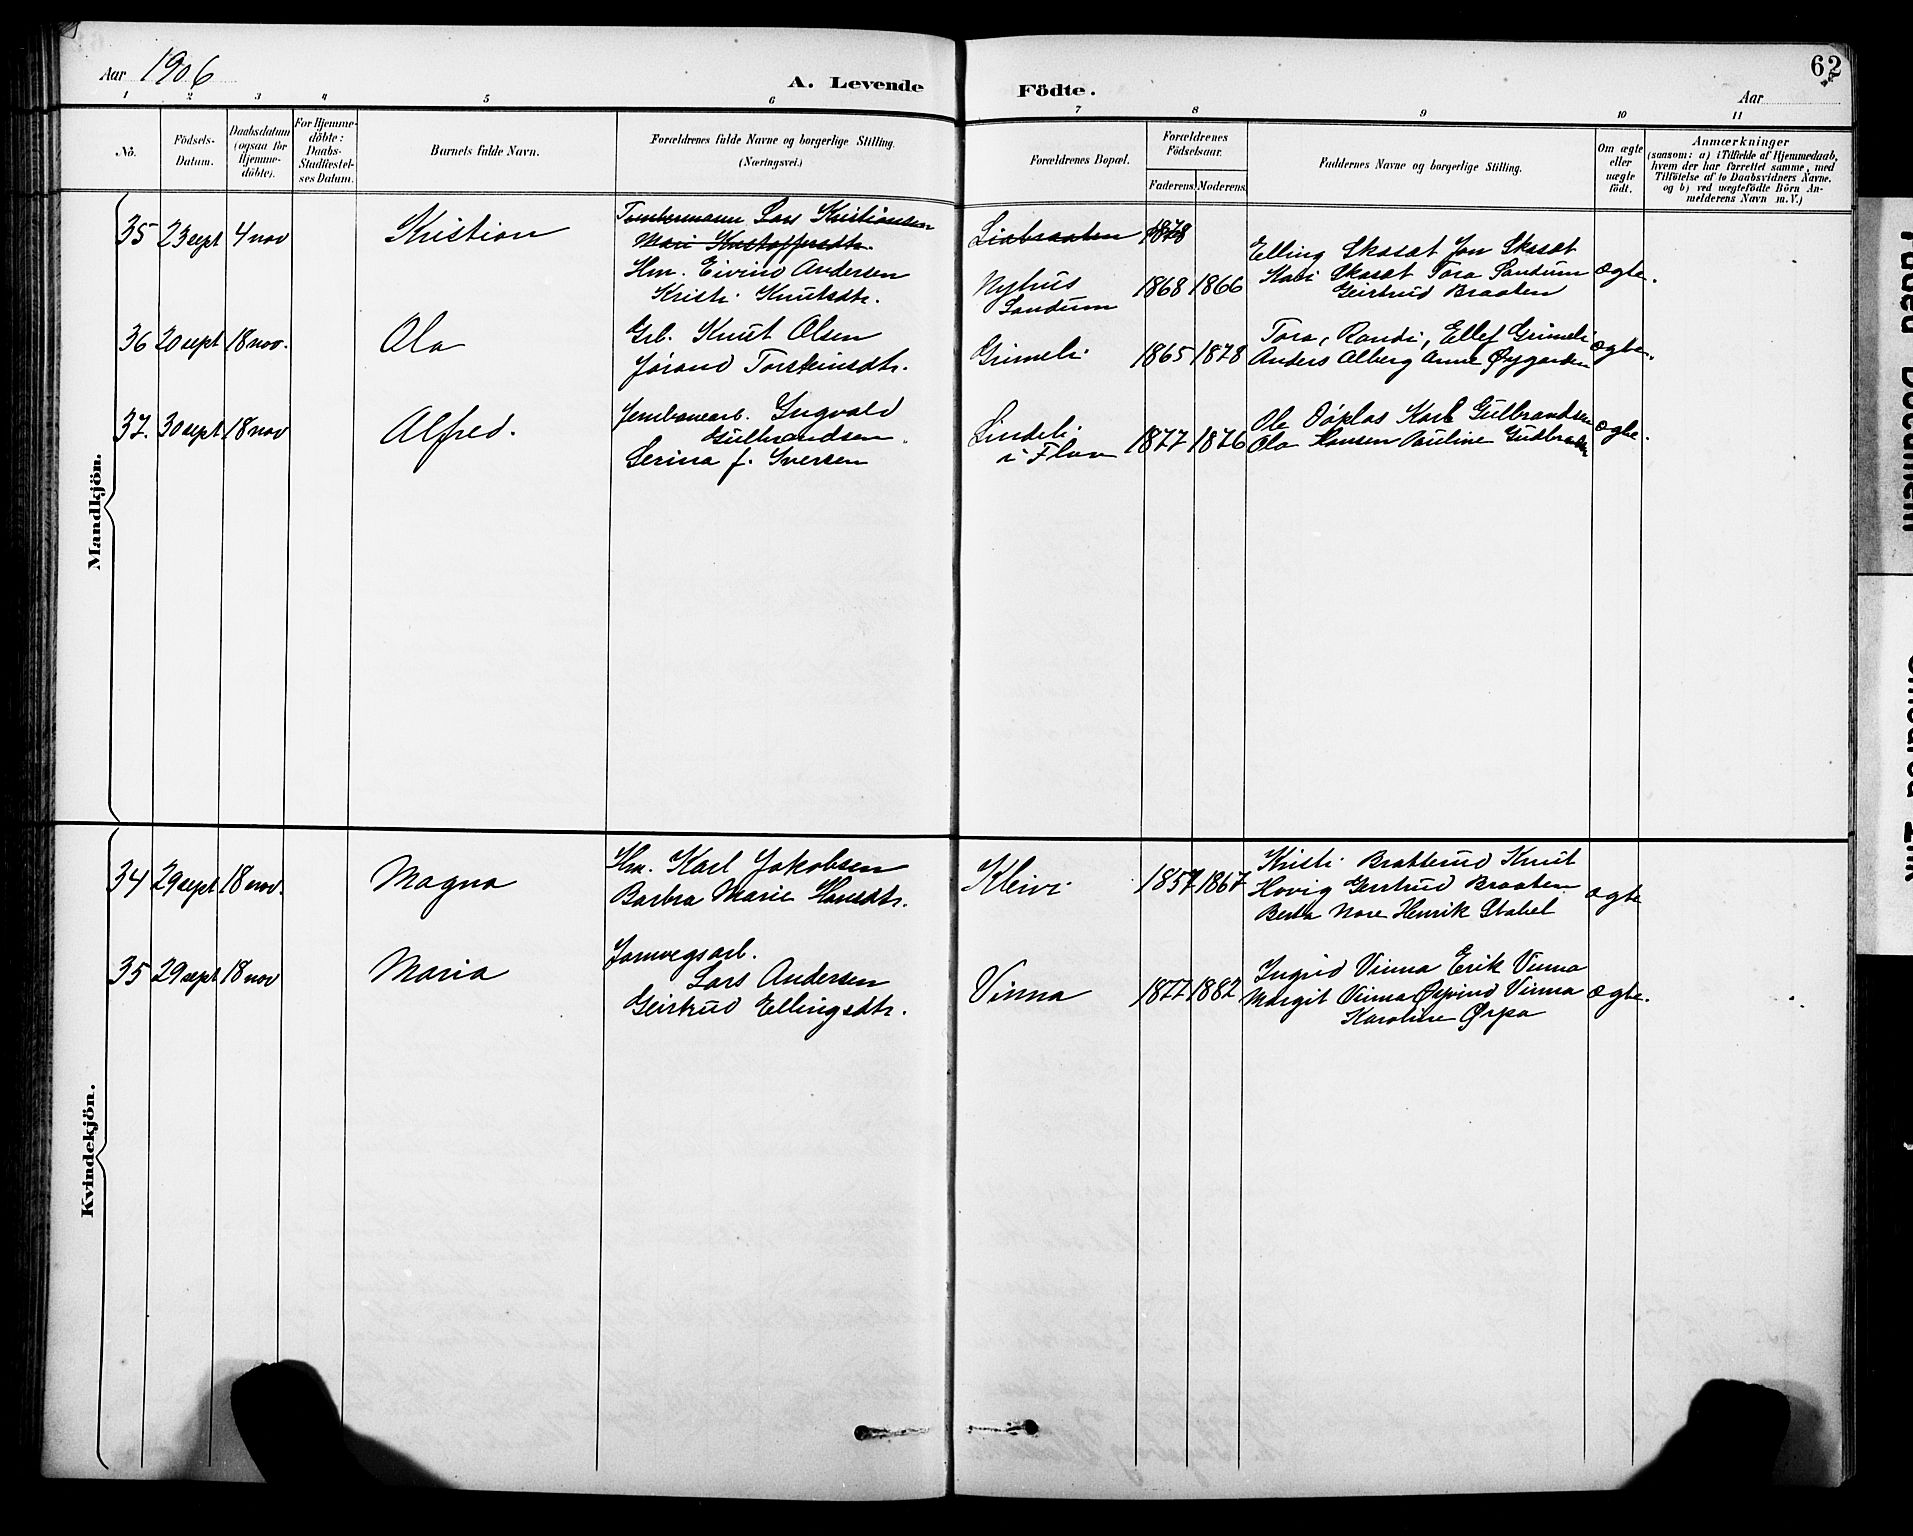 Aar 1906
A. Levende Födte.
Aar
62
1 2 3 4 5 6 7 8 9 10 11
No.
Födsels-
Datum.
Daabsdatum
(ogsaa for
Hjemme-
döbte).
For Hjemme-
döbte:
Daabs-
Stadfæstel-
ses Datum.
Barnets fulde Navn.
Forældrenes fulde Navne og borgerlige Stilling.
(Næringsvei.)
Forældrenes Bopæl.
Forældrenes
Födselsaar.
Faderens. Moderens.
Faddernes Navne og borgerlige Stilling.
Om ægte
eller
uægte
födt.
Anmærkninger
(saasom: a) i Tilfælde af Hjemmedaab,
hvem der har forrettet samme, med
Tilföielse af to Daabsvidners Navne,
og b) ved uægtefödte Börn An-
melderens Navn m. V.)
Mandkjön.
35 23 sept 4 nov Kristian
Tømmermann Lars Kristiansen
Mari Kristoffersdtr.
Hm. Eivind Andersen
Kristi Knutsdtr.
Liabraaten 1878
Nyhus
Sandum
1868 1866
Elling Skasæt Jon Skasæt
Kari Skasæt Tora Sandum
Geirtrud Braaten
ægte.
36 20 sept 18 nov. Ola
Grb. Knut Olsen
Jørand Torsteinsdtr.
Grimeli 1865 1878
Tora, Randi, Ellef Grimeli
Anders Alberg Anne Øygarden
ægte.
37. 30 sept 18 nov Alfred.
Jernbanearb. Ingvald
Gulbrandsen
Serina f. Iversen
Lindeli
i Flaa
1877 1876
Ole Døplas Karl Gulbrandsen
Ola Hansen Pauline Gudbrandsen
ægte.
Kvindekjön.
34 29 sept 18 nov. Magna
Hm. Karl Jakobsen
Barbra Marie Hansdtr.
Kleivi 1857 1867
Kristi Bratterud Knut
Hovig Gertrud Braaten
Berta Nore Henrik Stabel
ægte
35 29 sept 18 nov Maria
Jarnvegsarb.
Lars Andersen
Geirtrud Ellingsdtr.
Vinna 1877 1882
Ingrid Vinna Erik Vinna
Margit Vinna Øyvind Vinna
Karoline Ørpa
ægte.